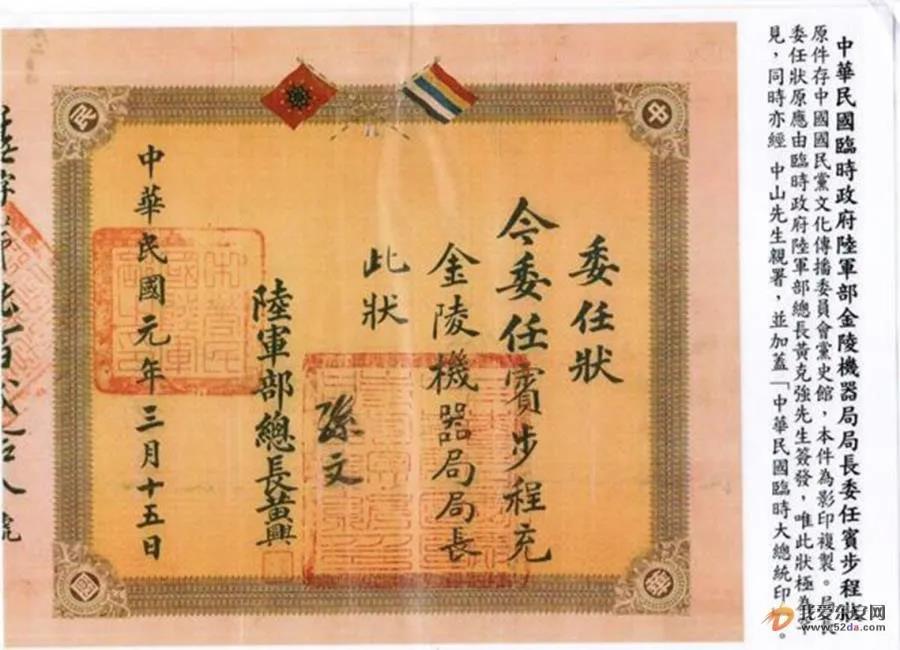 中華民國臨時政府陸軍部金陵機器局局長委任賓步程狀
原件存中國國民黨文化傳播委員會黨史館，本件為影印複製。
委任狀原應由臨時政府陸軍部總長黃克強先生簽發，唯此狀極為
見，同時亦經 中山先生親署，並加蓋「中華民國臨時大總統印」。
中
華
民
國
委任狀
今委任賓步程充
金陵機器局局長
此狀
孫文
陸軍部總長黃興
中華民國元年三月十五日
號
我爱东安网
www.52da.com